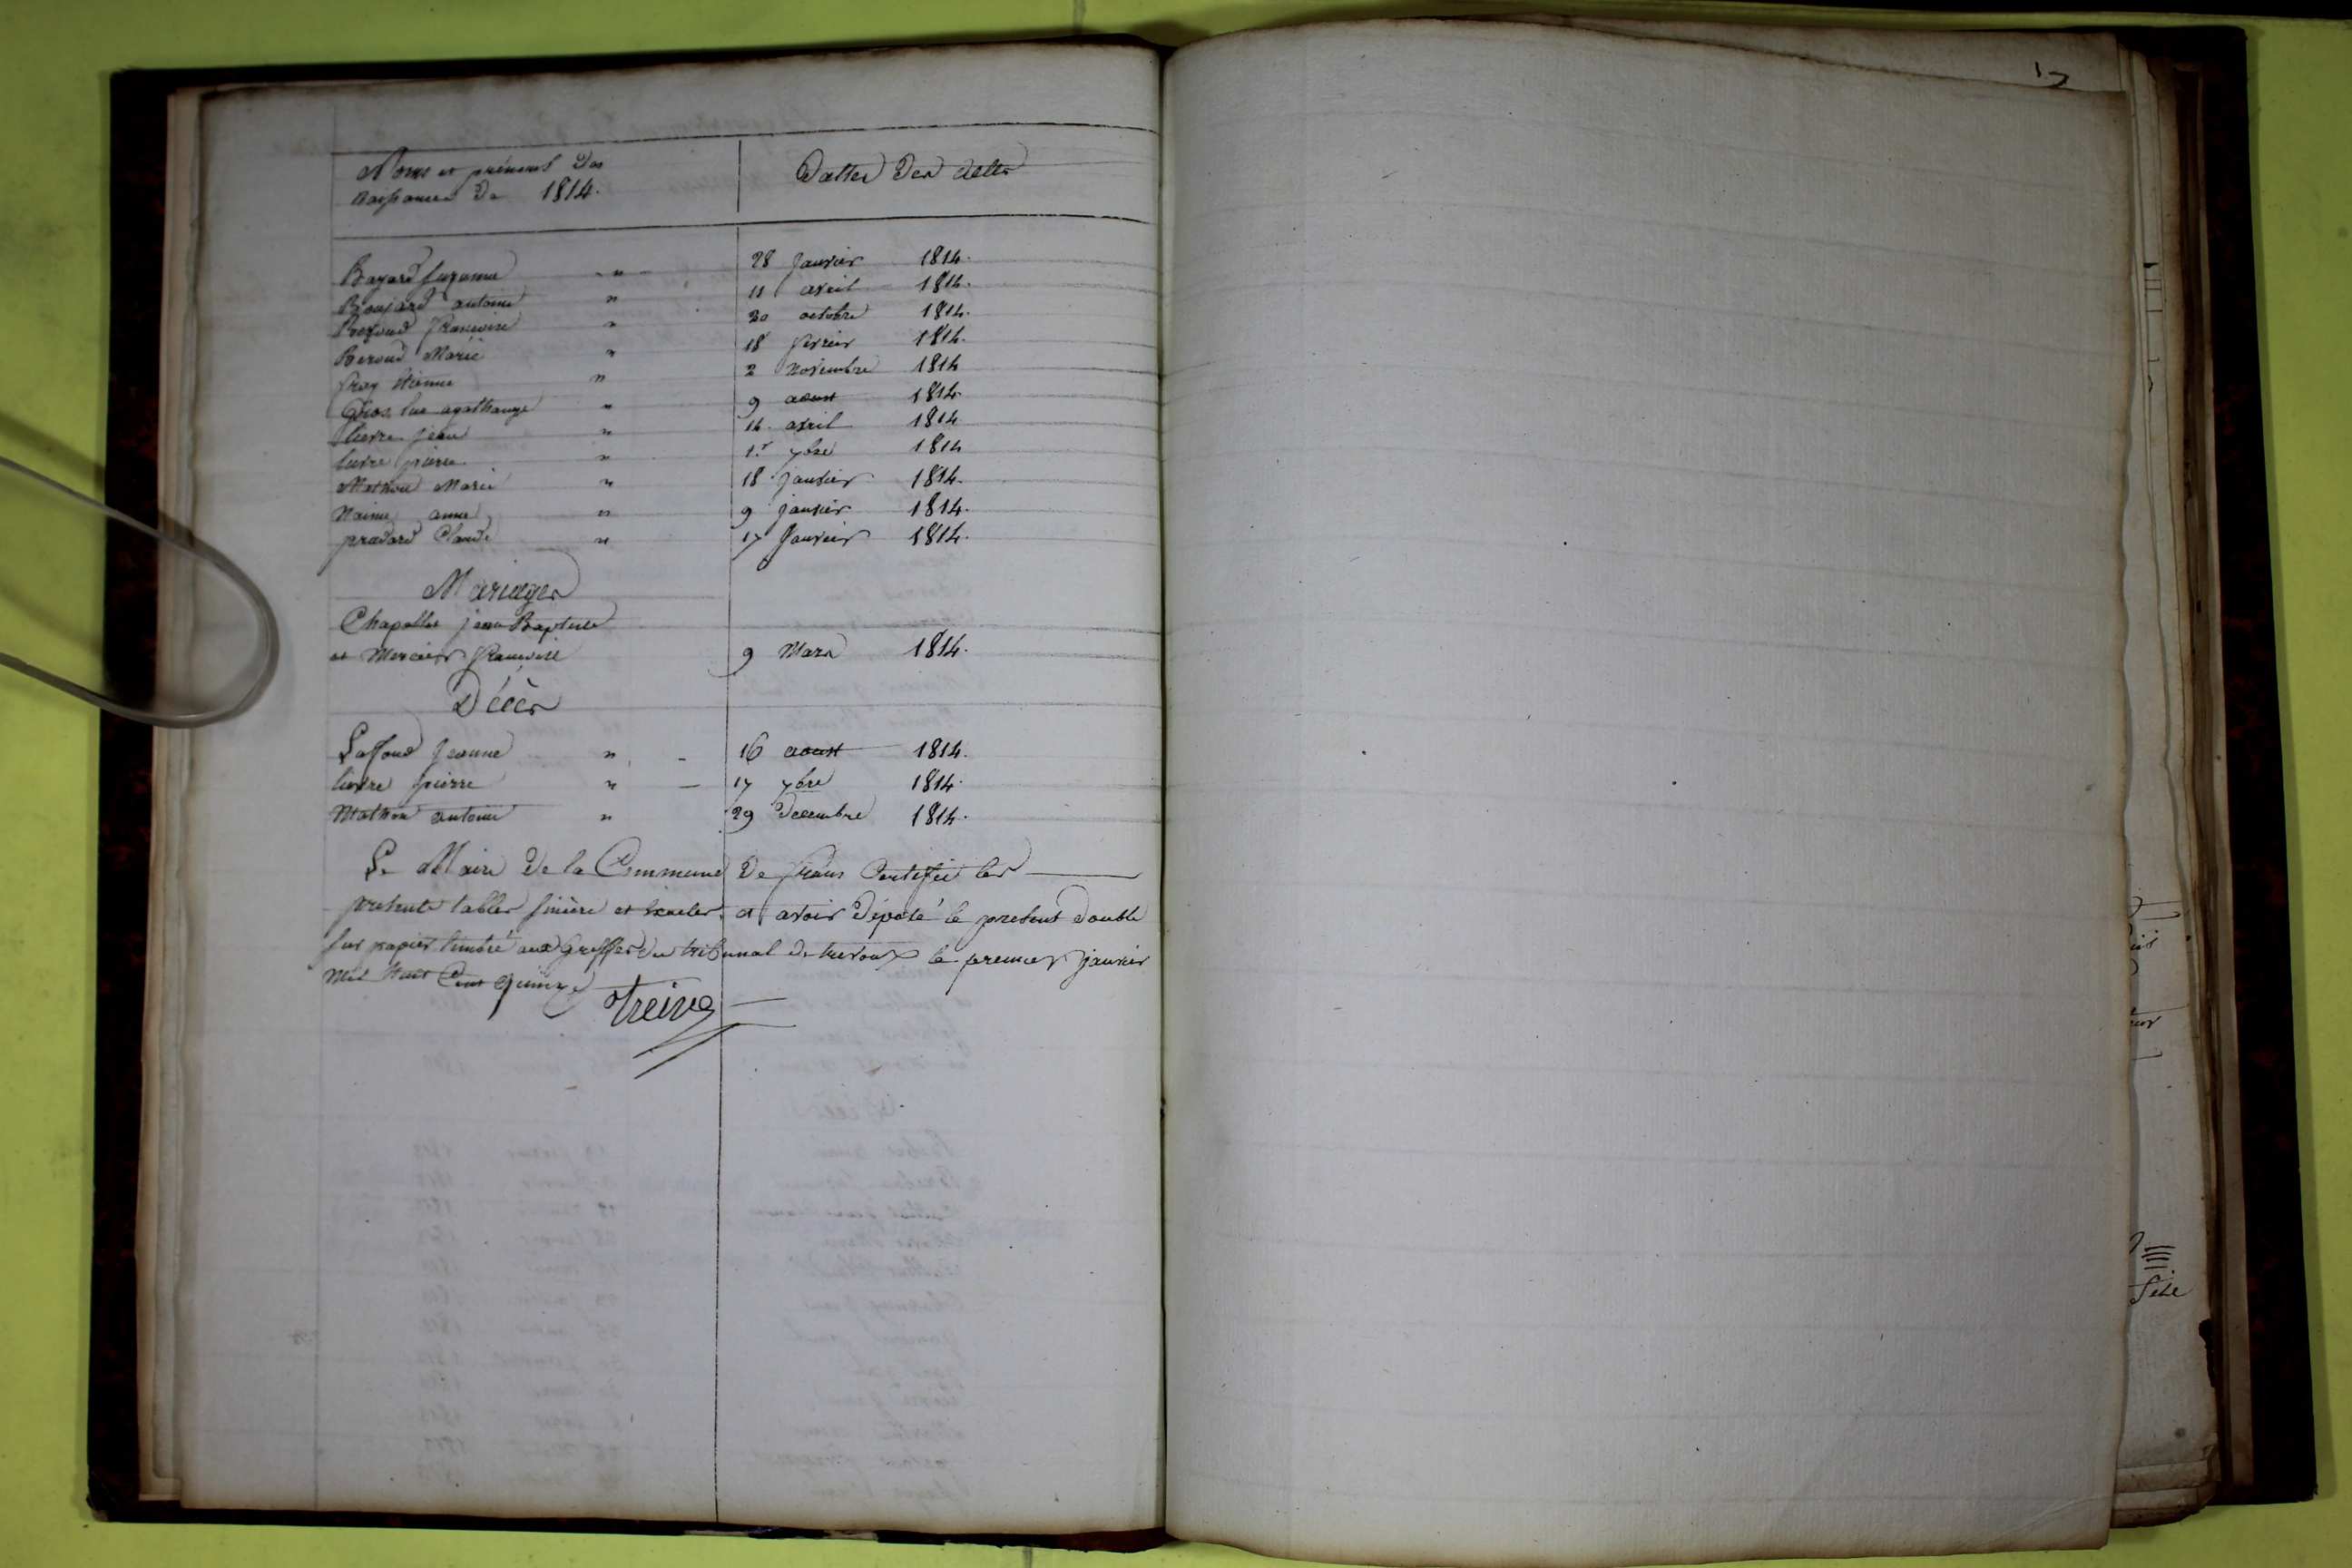 Noms et prénoms des
naissances de 1814.
Dattes des actes
Bayard suzanne " 28 Janvier 1814.
Broujard antoine " 11 avril 1814.
françoise " 20 octobre 1814.
Beroud Marie " 18 fevrier 1814.
fray étienne " 2 novembre 1814
Gros luc agathange " 9 aoust 1814.
lievre jean " 14 avril 1814
lievre pierre " 1.r 7bre 1814
Mathou Marie " 18 janvier 1814.
anne " 9 janvier 1814.
pradard Claude " 17 Janvier 1814.
Mariages
Chapolles jean Baptiste
et Mercier françoise 9 Mars 1814.
Décès
Laffond Jeanne " 16 aoust 1814.
lievre pierre " 17 7bre 1814.
Mathou antoine " 29 Decembre 1814.
Le Maire de la Commune de frans Certifie les
presente tables sincère et exactes. et avoir déposé le present double
sur papier timbré aux Greffes du tribunal de trevoux le premier janvier
Mil huit Cent quinze
17